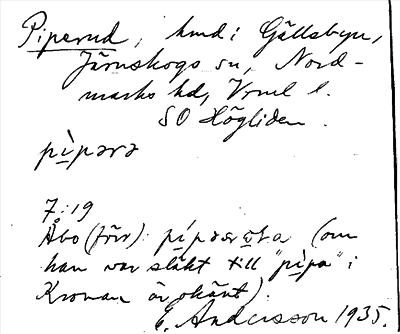 Piperud, hmd i Gällsbyn,
Järnskogs sn, Nord-
marks hd, Vrml l.
SO Högliden.
pìpərə
7:19
Åbo (förr) pípər a (om
han var släkt till "pìpa" i
Kronan är okänt).
E. Andersson 1935.